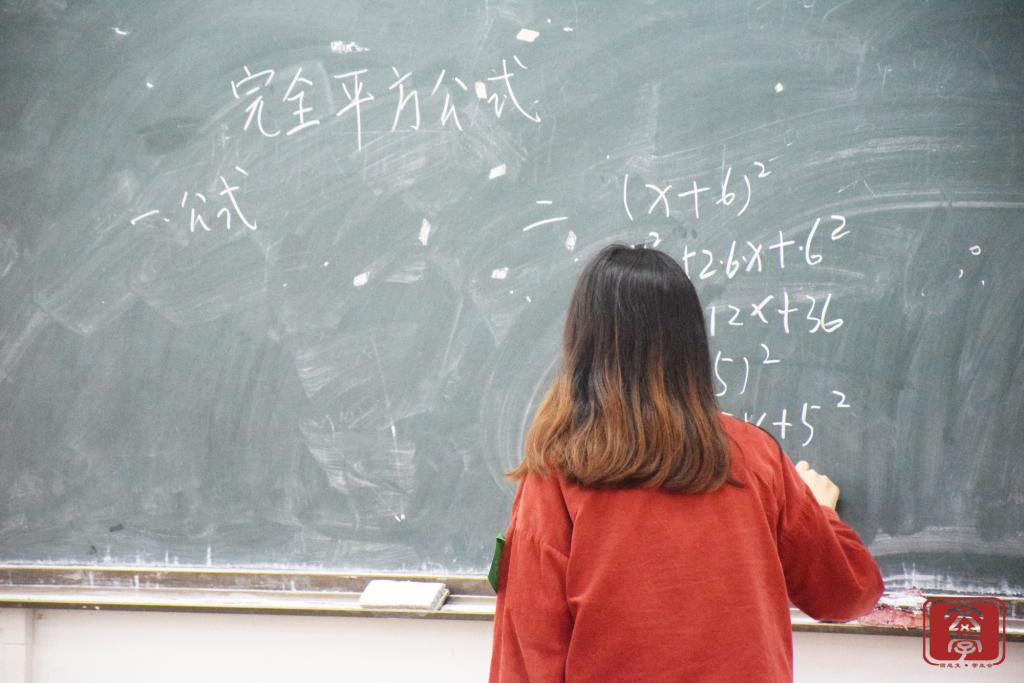 完全平方公式
一.公式
二 (x+6)²
+2·6·x+·6²
12x+36
5)²
x+5²